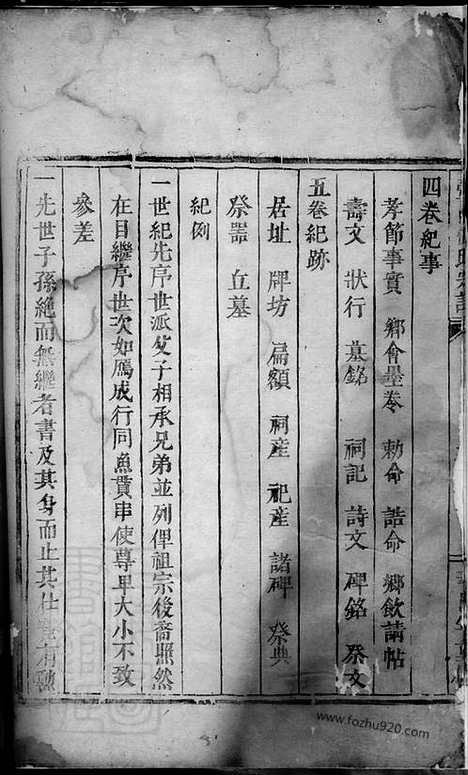 四卷紀事
孝節事實 鄉會墨卷 勅命 誥命 鄉飲請帖
壽文 狀行 墓銘 祠記 詩文 碑銘 祭文
五卷紀跡
居址 牌坊 扁額 祠產 祀產 諸碑 祭典
祭器 丘墓
紀例
一世紀先序世派父子相承兄弟並列俾祖宗後裔照然
在目繼序世次如鴈成行同魚貫串使尊卑大小不致
參差
一先世子孫絶而無繼者書及其身而止其仕
www.fozhu920.com